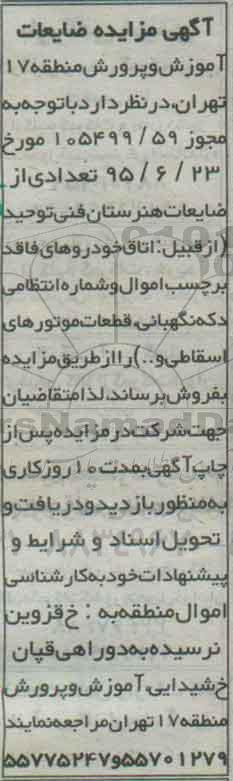 آگهی مزایده ضایعات
آموزش وپرورش منطقه ۱۷
تهران، در نظر دارد با توجه به
مجوز ۵۹ / ۱۰۵۴۹۹ مورخ
۲۳ / ۶ / ۹۵ تعدادی از
ضایعات هنرستان فنی توحید
(از قبیل: اتاق خودروهای فاقد
برچسب اموال وشماره انتظامی
دکه نگهبانی، قطعات موتورهای
اسقاطی و..) را از طریق مزایده
بفروش برساند، لذا متقاضیان
جهت شرکت در مزایده پس از
چاپ آگهی بمدت ۱۰ روز کاری
به منظور بازدید و دریافت و
تحویل اسناد و شرایط و
پیشنهادات خود به کارشناسی
اموال منطقه به : خ قزوین
نرسیده به دوراهی قپان
خ شیدایی، آموزش وپرورش
منطقه ۱۷ تهران مراجعه نمایند
۵۵۷۰۱۲۷۹و۵۵۷۷۵۲۴۷